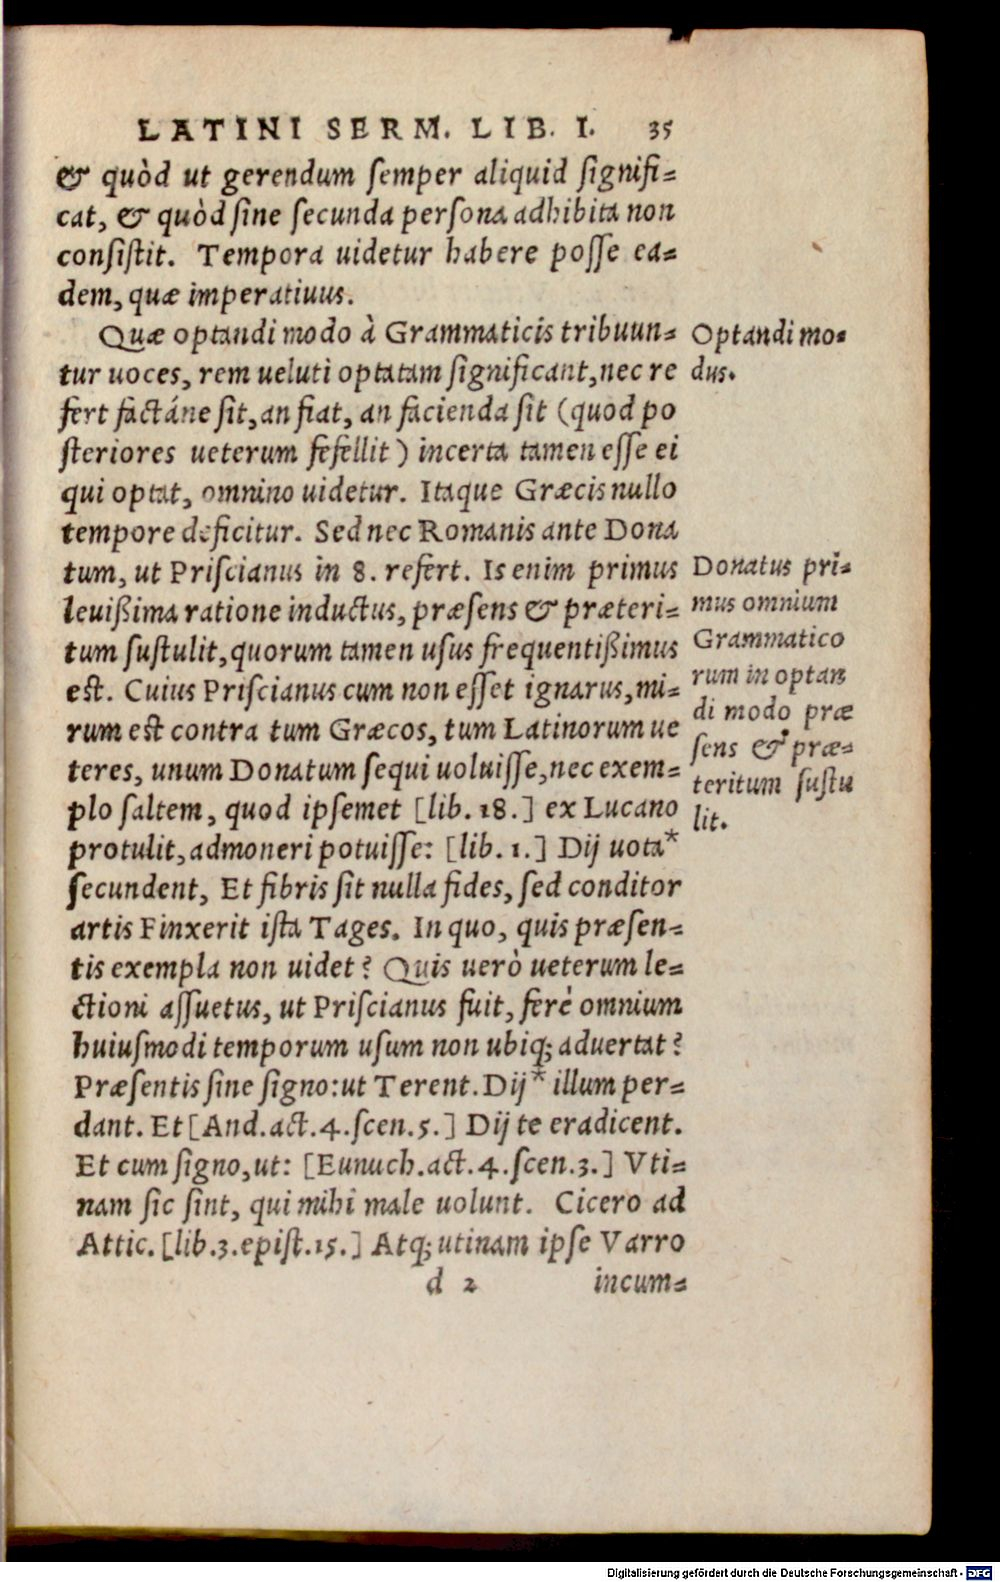 LATINI SERM. LIB. I. 35
& quòd ut gerendum semper aliquid signifi-
cat, & quòd sine secunda persona adhibita non
consistit. Tempora uidetur habere posse ea-
dem, quæ imperatiuus.
Quæ optandi modo à Grammaticis tribuun-
tur uoces, rem ueluti optatam significant, nec re
fert factáne sit, an fiat, an facienda sit (quod po
steriores ueterum fefellit) incerta tamen esse ei
qui optat, omnino uidetur. Itaque Græcis nullo
tempore deficitur. Sed nec Romanis ante Dona
tum, ut Priscianus in 8. refert. Is enim primus
leuißima ratione inductus, præsens & præteri-
tum sustulit, quorum tamen usus frequentißimus
est. Cuius Priscianus cum non esset ignarus, mi-
rum est contra tum Græcos, tum Latinorum ue
teres, unum Donatum sequi uoluisse, nec exem-
plo saltem, quod ipsemet [lib. 18.] ex Lucano
protulit, admoneri potuisse: [lib. 1.] Dij uota*
secundent, Et fibris sit nulla fides, sed conditor
artis Finxerit ista Tages. In quo, quis præsen-
tis exempla non uidet? Quis uerò ueterum le-
ctioni assuetus, ut Priscianus fuit, ferè omnium
huiusmodi temporum usum non ubiq; aduertat?
Præsentis sine signo: ut Terent. Dij* illum per-
dant. Et [And. act. 4. scen. 5.] Dij te eradicent.
Et cum signo, ut: [Eunuch. act. 4. scen. 3.] Vti-
nam sic sint, qui mihi male uolunt. Cicero ad
Attic. [lib. 3. epist. 15.] Atq; utinam ipse Varro
d 2 incum-
Optandi mo-
dus.
Donatus pri-
mus omnium
Grammatico
rum in optan
di modo præ
sens & præ-
teritum sustu
lit.
Digitalisierung gefördert durch die Deutsche Forschungsgemeinschaft - DFG